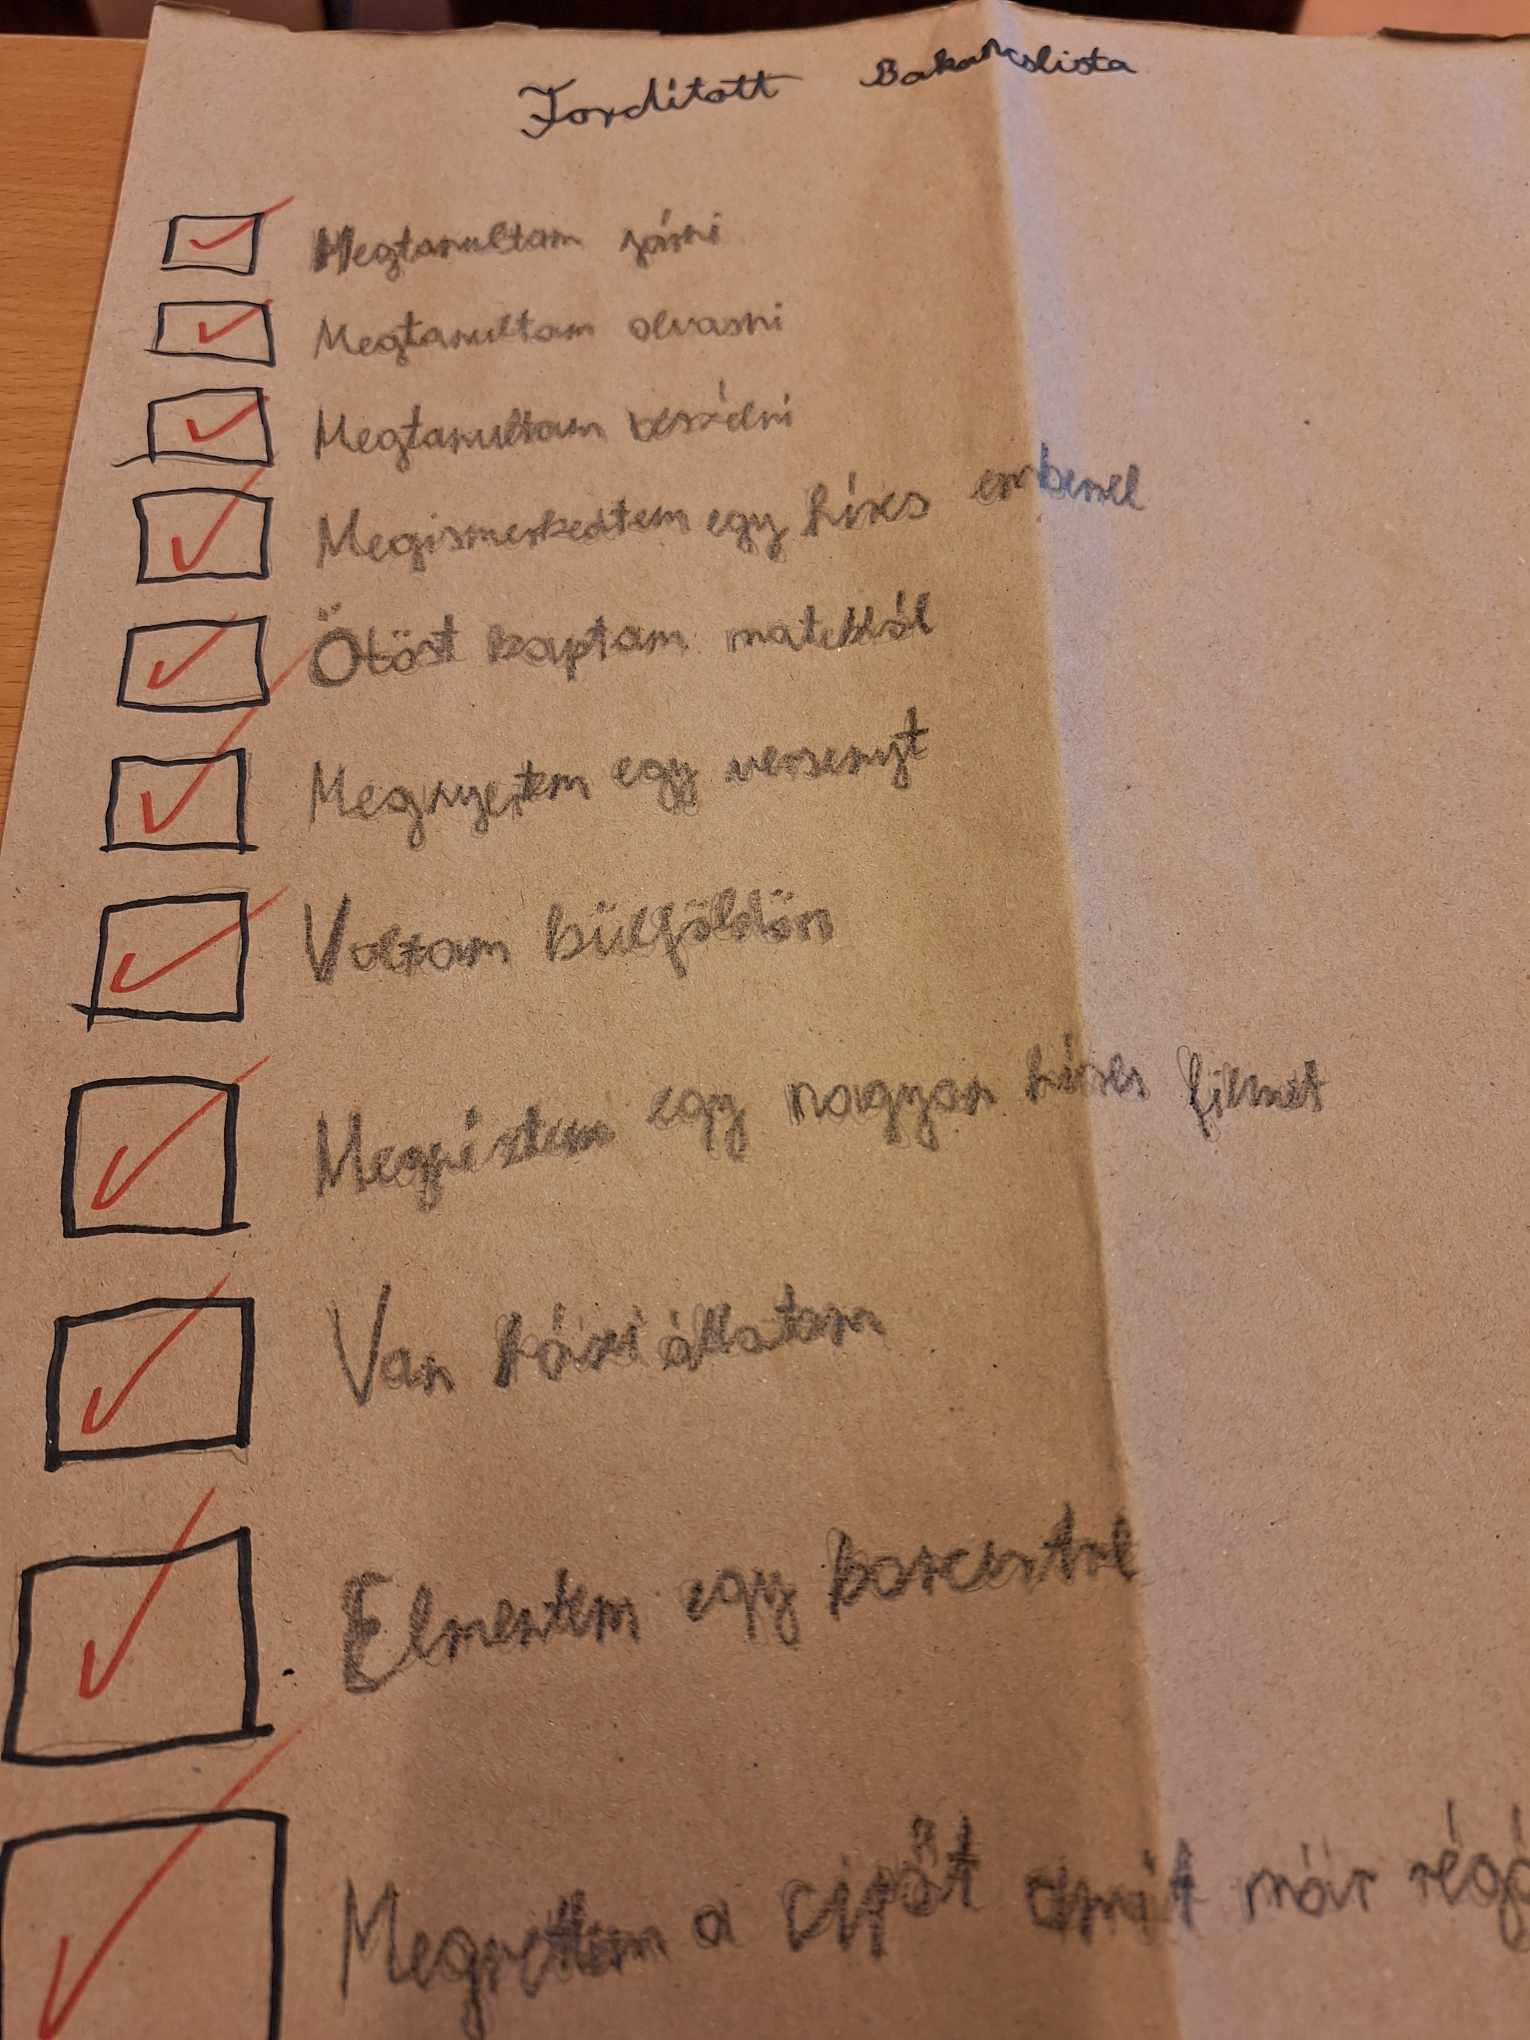 Fordított Bakancslista
Megtanultam járni
Megtanultam olvasni
Megtanultam beszélni
Megismerkedtem egy híres emberrel
Ötöst kaptam matekból
Megnyertem egy versenyt
Voltam külföldön
Megnéztem egy nagyon híres filmet
Van házi állatom
Elmentem egy koncertre
Megvettem a cipőt amit már rég